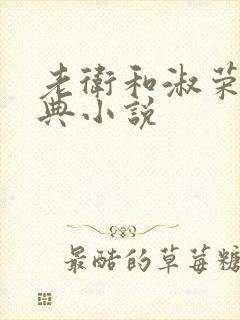 老衛和淑荣
典小説
最酷的草莓糖